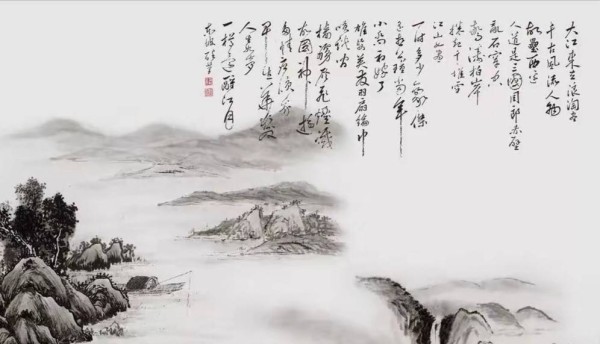 大江東去浪淘尽
千古風流人物
故壘西边
人道是三國周郎赤壁
亂石穿空
驚濤拍岸
捲起千堆雪
江山如画
一时多少豪傑
遥想公瑾當年
小喬初嫁了
雄姿英发羽扇綸巾
談笑间
檣櫓灰飛煙滅
故國神遊
多情應笑我
早生華发
人生如夢
一樽還酹江月
東坡